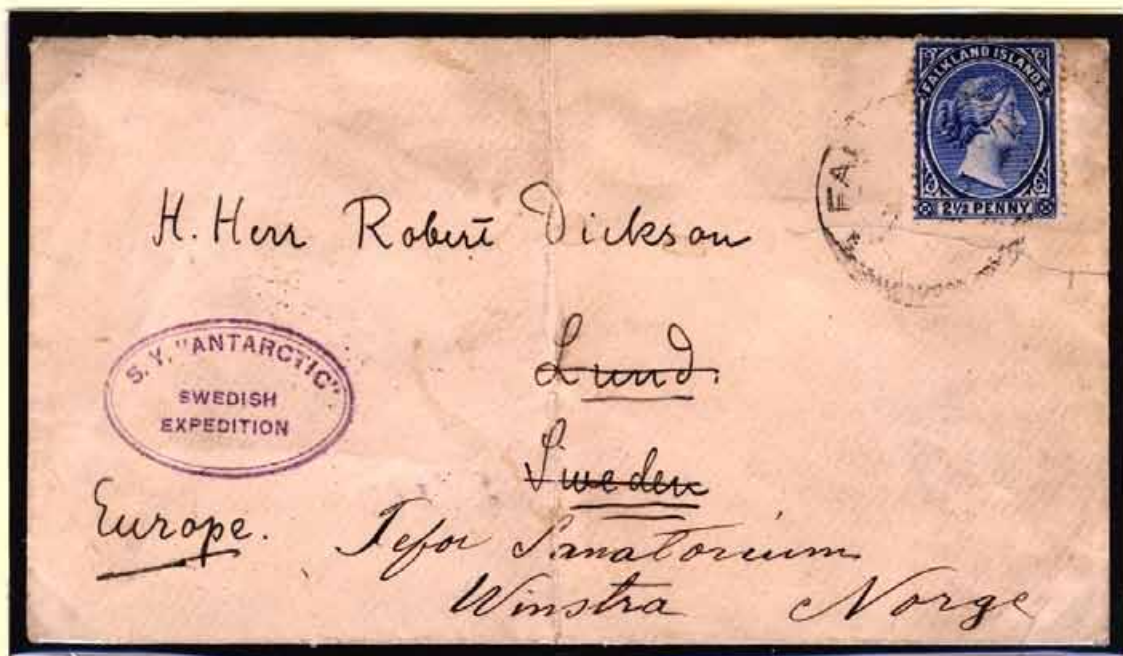 FALKLAND ISLANDS
2½ PENNY
FAL
H. Herr Robert Dickson
Lund.
Sweden
S. Y. "ANTARCTIC"
SWEDISH
EXPEDITION
Europe.
Tefor Sanatorium
Winstra Norge